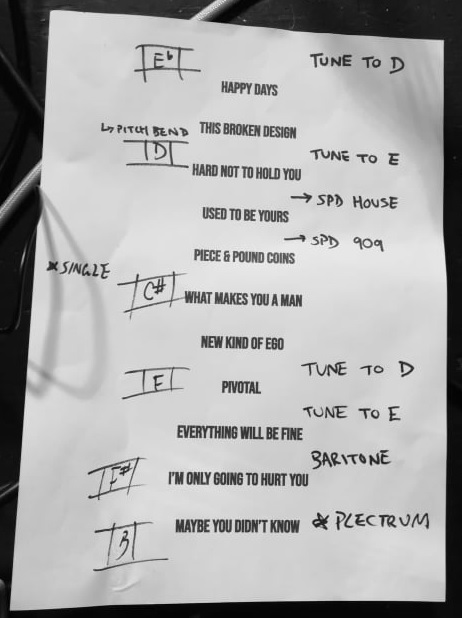 E♭ TUNE TO D
HAPPY DAYS
↳ PITCH BEND THIS BROKEN DESIGN
D TUNE TO E
HARD NOT TO HOLD YOU
→ SPD HOUSE
USED TO BE YOURS
→ SPD 909
PIECE & POUND COINS
* SINGLE
C# WHAT MAKES YOU A MAN
NEW KIND OF EGO
TUNE TO D
E PIVOTAL
TUNE TO E
EVERYTHING WILL BE FINE
BARITONE
F# I'M ONLY GOING TO HURT YOU
MAYBE YOU DIDN'T KNOW * PLECTRUM
B